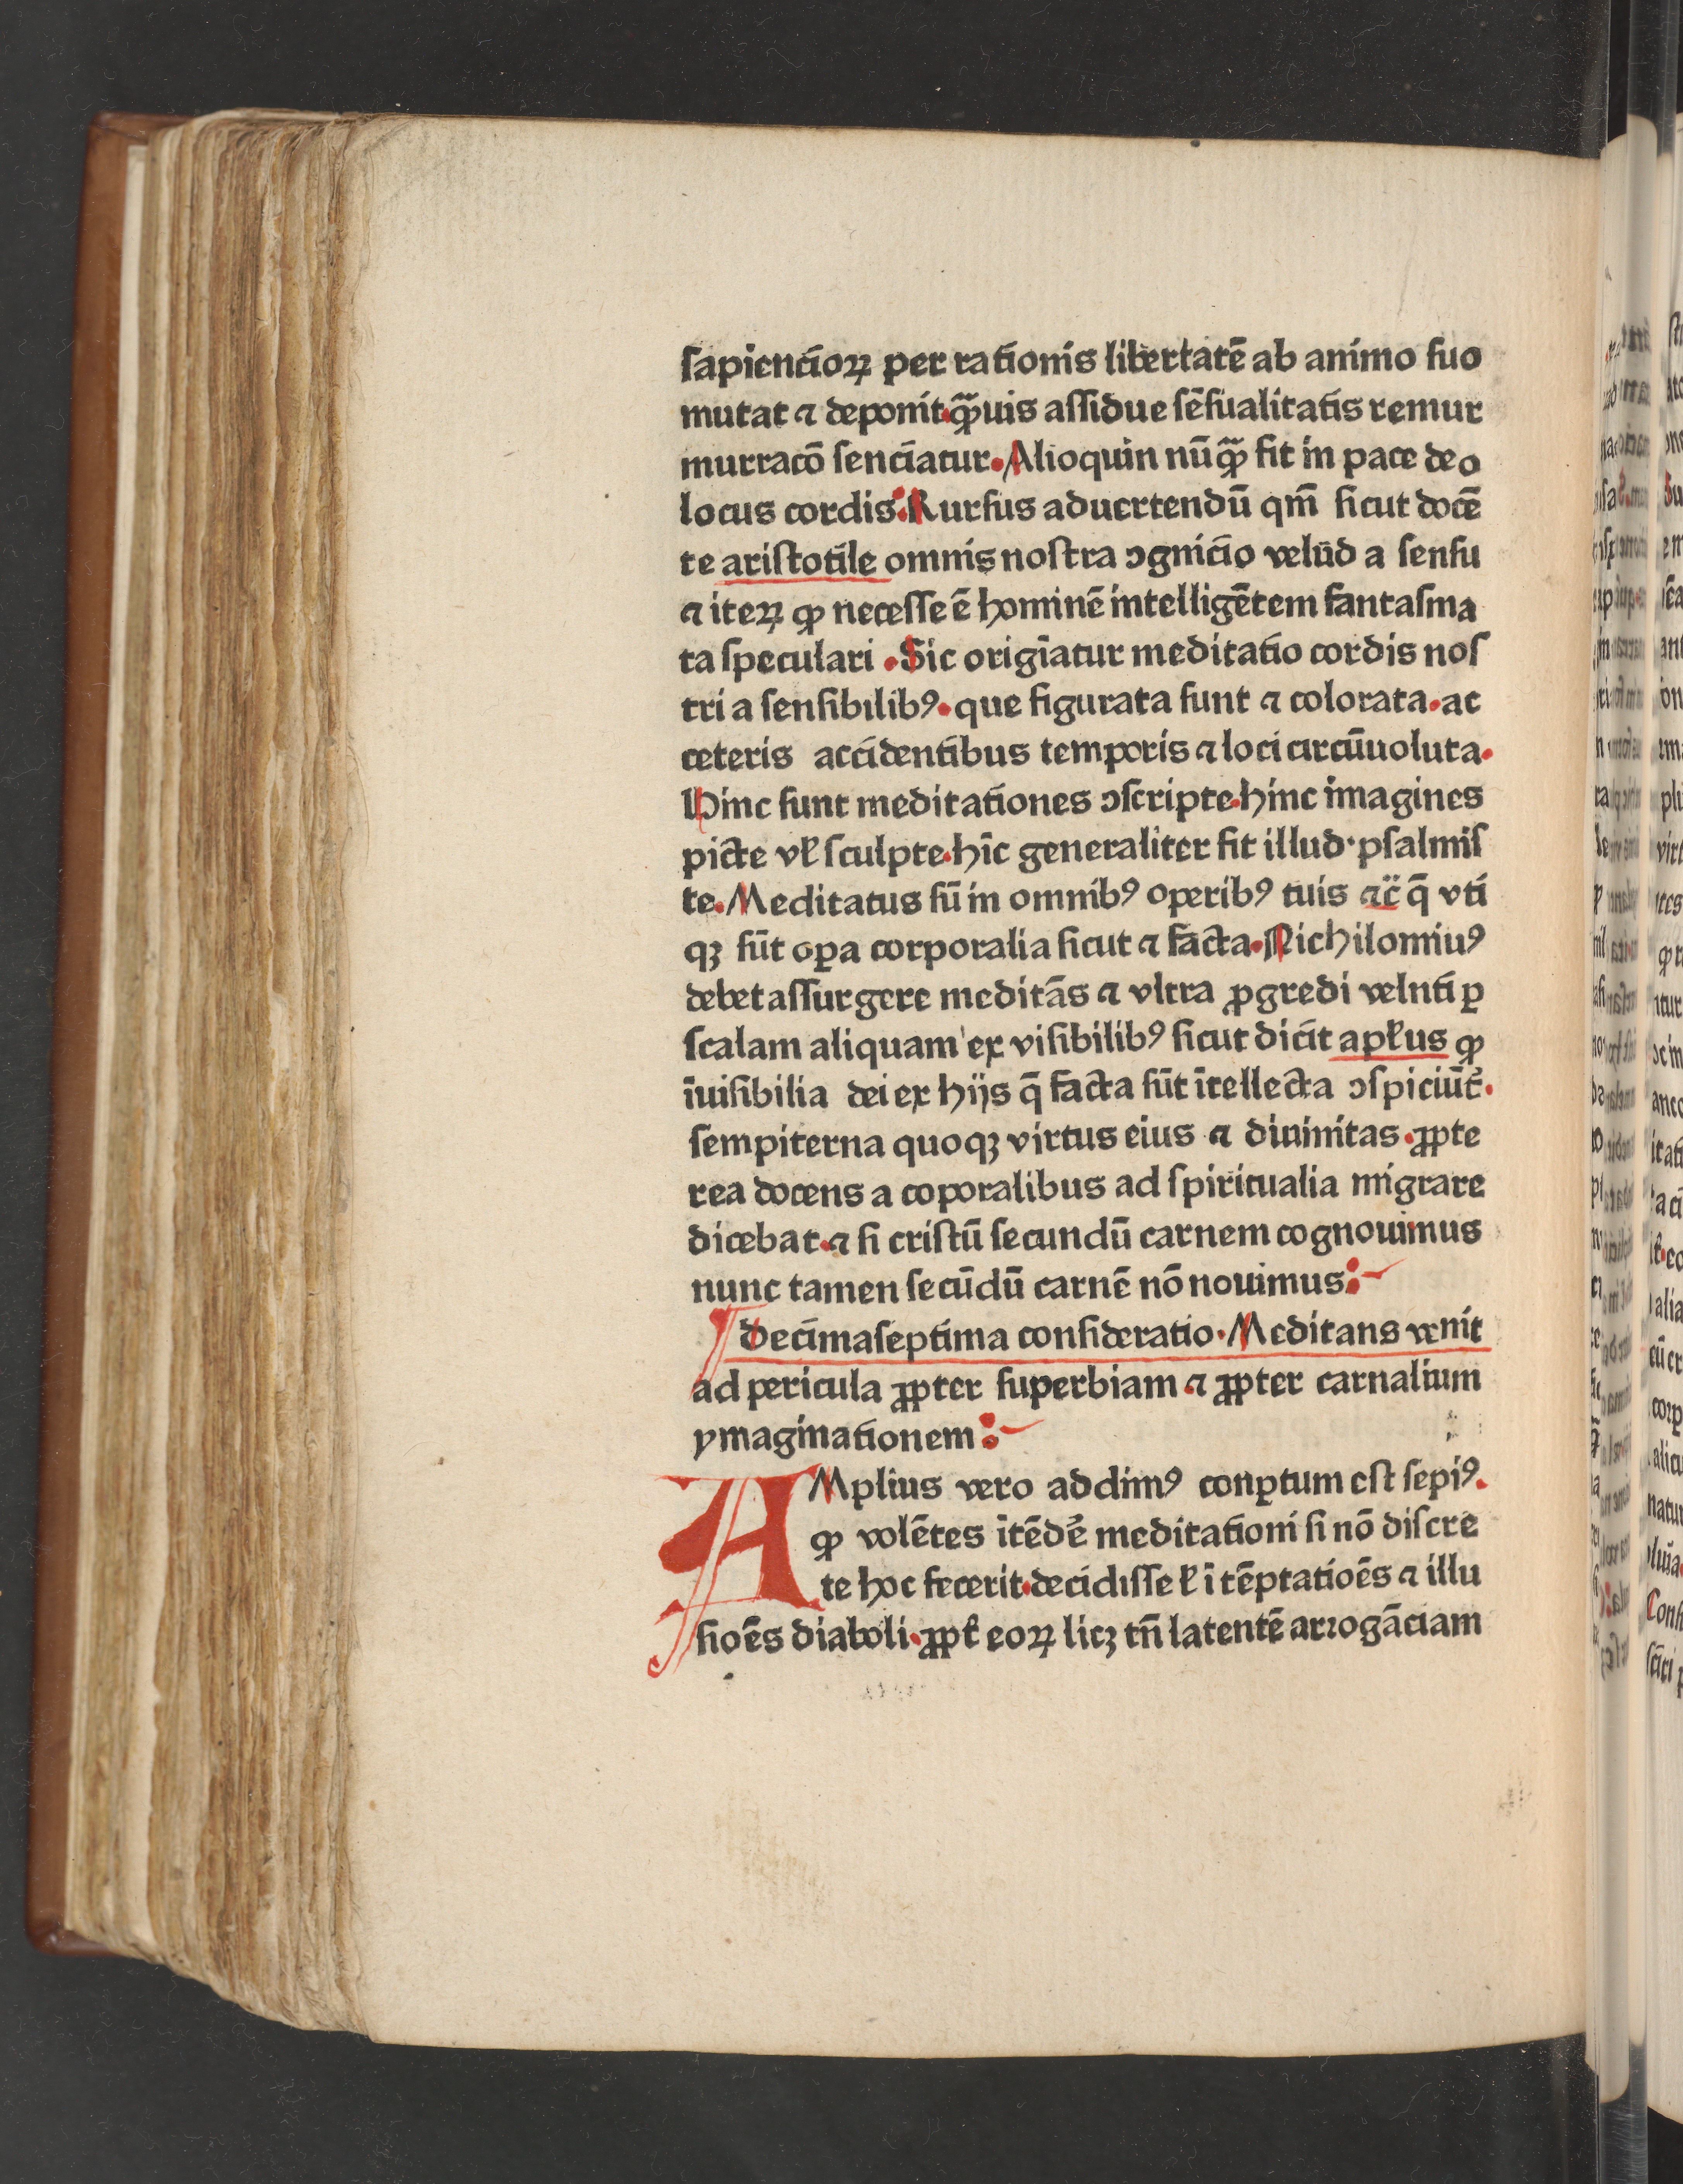 sapiencioꝝ per rationis libertatē ab animo suo
mutat ⁊ deponit. qᷓuis assidue sēsualitatis remur
murracō senciatur. Alioquin nūqᷓ fit in pace deo
locus cordis: Rursus aduertendū qm̄ sicut docē
te aristotile omnis nostra ↄgnicio velūd a sensu
⁊ iteꝝ ꝙ necesse ē hominē intelligētem fantasma
ta speculari . Sic origīatur meditatio cordis nos
tri a sensibilibꝰ. que figurata sunt ⁊ colorata. ac
ceteris accidentibus temporis ⁊ loci circūuoluta.
Hinc sunt meditationes ↄscripte. hinc imagines
picte vł sculpte. hīc generaliter fit illud · psalmis
te. Meditatus sū in omnibꝰ operibꝰ tuis ⁊c̄ q̄ vti
qꝫ sūt oꝑa corporalia sicut ⁊ facta. Nichilomiuꝰ
debet assurgere meditās ⁊ vltra ꝓgredi velnti ꝑ
scalam aliquam ex visibilibꝰ sicut dicit apłus ꝙ
īuisibilia dei ex hijs q̄ facta sūt ītellecta ↄspiciūt᷑.
sempiterna quoqꝫ virtus eius ⁊ diuinitas . ꝓpte
rea docens a coporalibus ad spiritualia migrare
dicebat. ⁊ si cristū secundū carnem cognouimus
nunc tamen secūdū carnē nō nouimus:
Decimaseptima consideratio. Meditans venit
ad pericula ꝓpter superbiam ⁊ ꝓpter carnalium
ymaginationem:
AMplius vero addimꝰ conꝑtum est sepiꝰ.
ꝙ volētes ītēdē᷑ meditationi si nō discre
te hoc fecerit. decidisse ł ī tēptatioēs ⁊ illu
sioēs diaboli. ꝓpt᷑ eoꝝ licꝫ tn̄ latentē arrogāciam